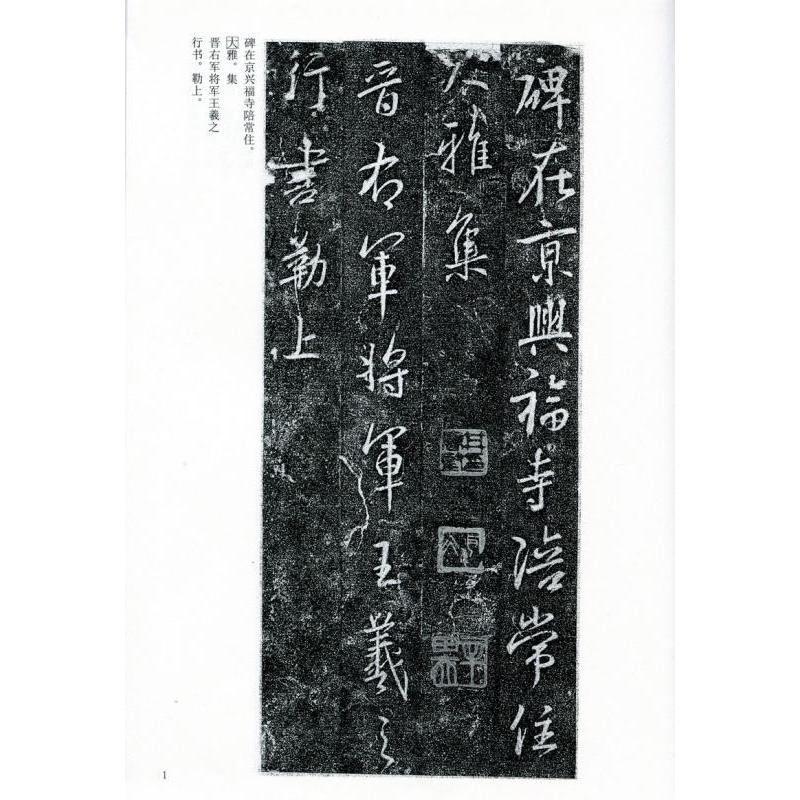 碑在京兴福寺陪常住。
大雅。集
晋右军将军王羲之
行书。勒上。
碑在京興福寺陪常住
大雅集
晋右軍將軍王羲之
行書勒上
1